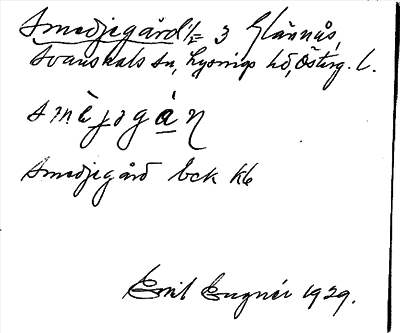 Smedjegård 1/2 3 Glännås,
Svanshals sn, Lysings hd, Österg. l.
smèjogán
Smedjegård bck kb
Emil Eugnér 1929.